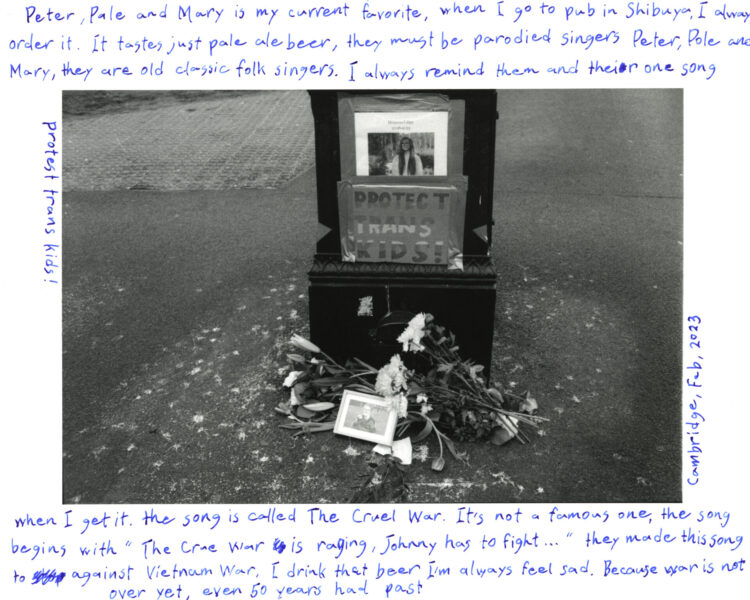 Peter, Pale and Mary is my current favorite, when I go to pub in Shibuya, I alway
order it. It tastes just pale ale beer, they must be parodied singers Peter, Pole and
Mary, they are old classic folk singers. I always remind them and their one song
protest trans kids!
PROTECT
TRANS
KIDS!
Cambridge, Feb, 2023
when I get it. the song is called The Cruel War. It's not a famous one, the song
begins with " The Crue War is raging, Johnny has to fight..." they made this song
to against Vietnam War. I drink that beer I'm always feel sad. Because war is not
over yet, even 50 years had past